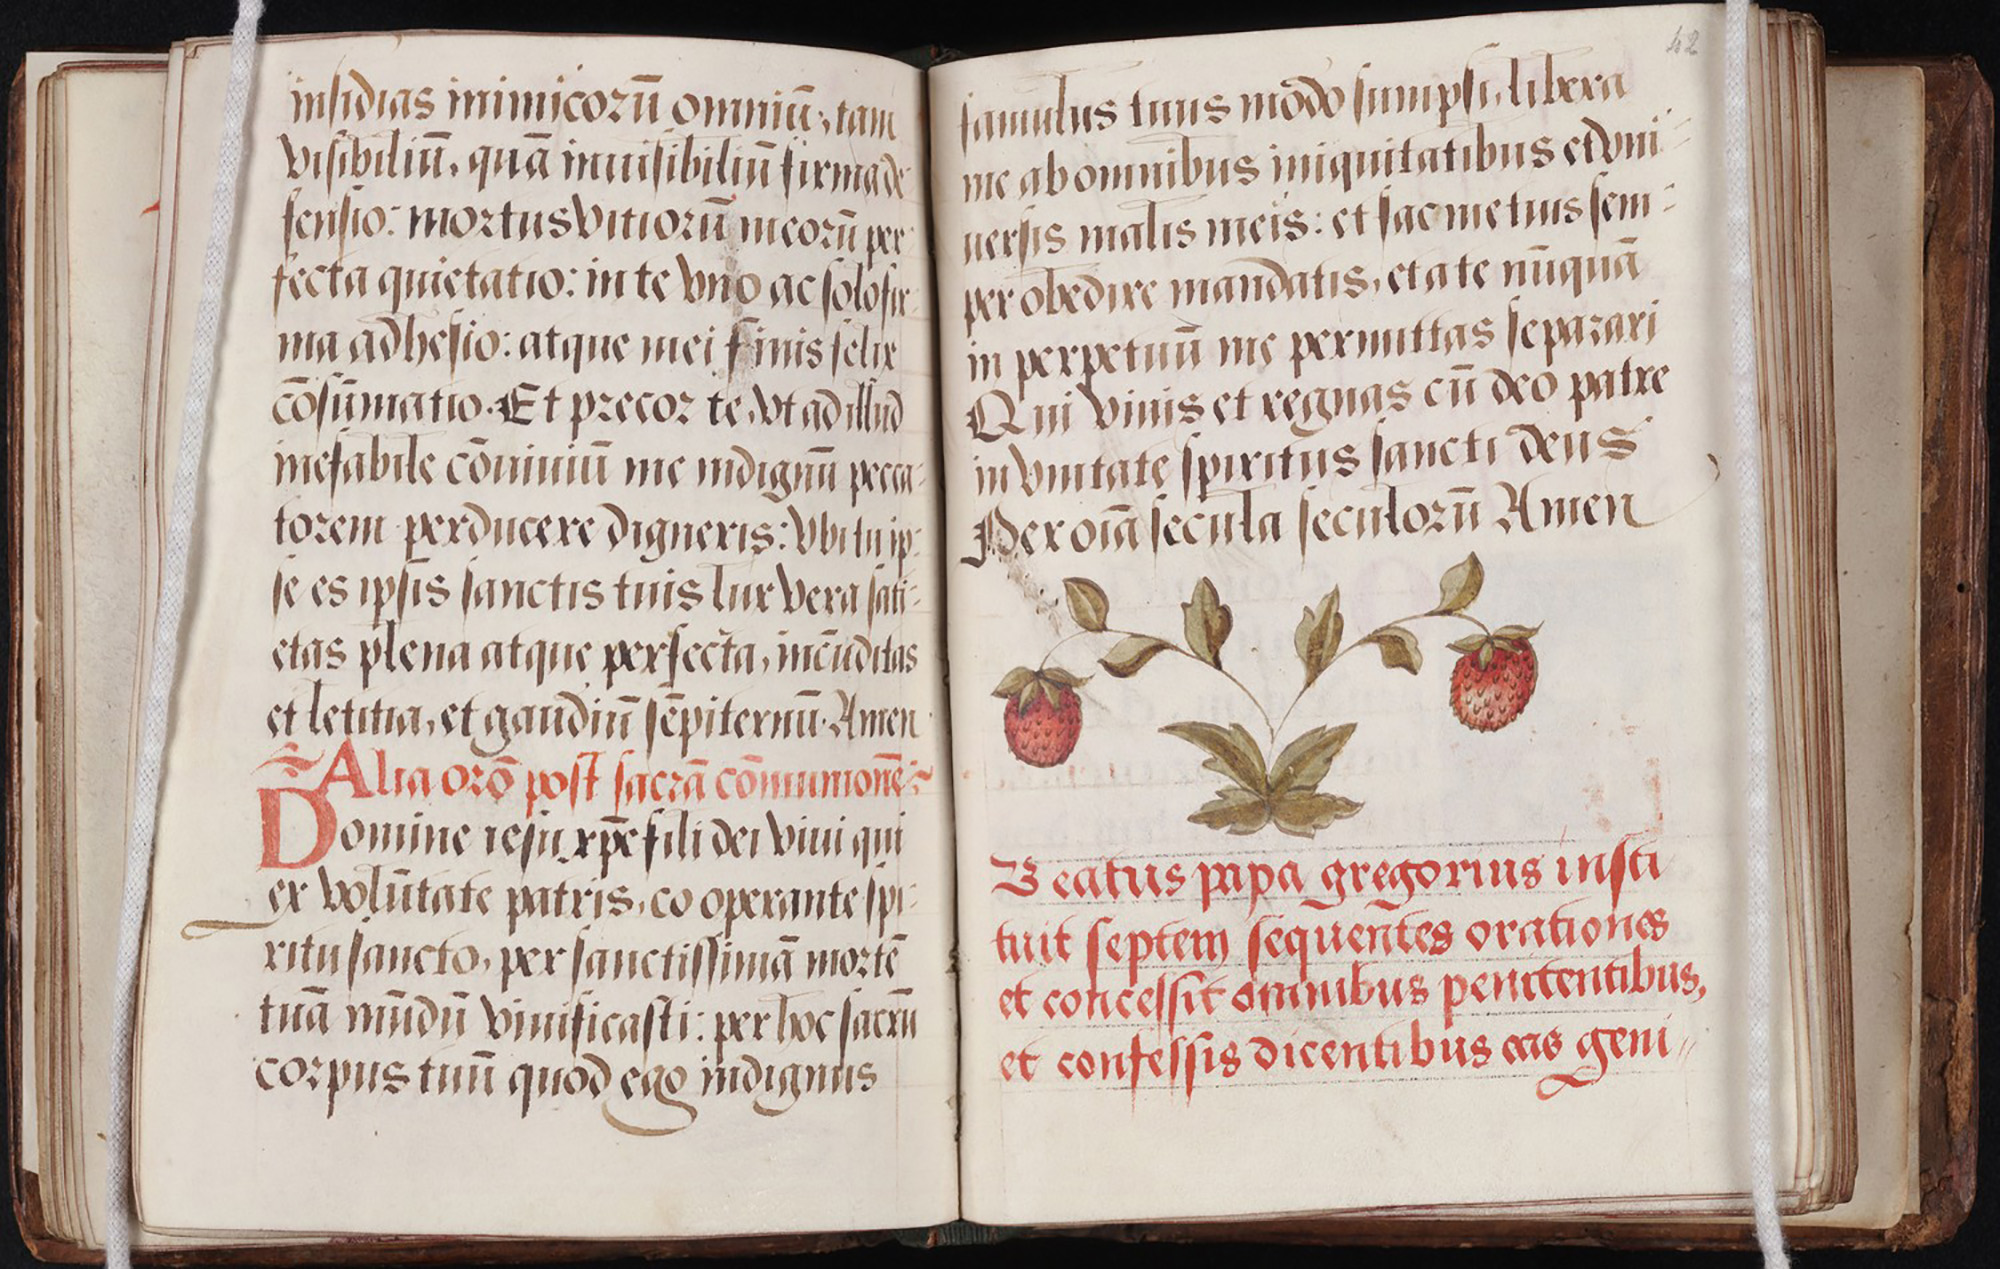 insidias inimicorū omniū, tam
visibiliū, quā inuisibiliū firma de-
fensio: mortus vitiorū meorū per-
fecta quietatio: in te vno ac solo fir-
ma adhesio: atque mei finis felix
cōsūmatio. Et precor te, vt ad illud
inefabile cōuiuiū me indignū pecca-
torem perducere digneris: Vbi tu ip-
se es ipsis sanctis tuis lux vera sati-
etas plena atque perfecta, iucūditas
et letitia, et gaudiū sēpiternū. Amen
Alia orō post sacrā cōmunionē
Domine iesu xpē fili dei viui qui
ex volūtate patris, co operante spi-
ritu sancto, per sanctissimā mortē
tuā mūdū viuificasti: per hoc sacrū
corpus tuū quod ego indignus
42
famulus tuus modo sumpsi, libera
me ab omnibus iniquitatibus et vni-
uersis malis meis: et fac me tuis sem-
per obedire mandatis, et a te nūquā
in perpetuū me permittas separari
Qui viuis et regnas cū deo patre
in vnitate spiritus sancti deus
Per oīa secula seculorū Amen
Beatus papa gregorius insti
tuit septem sequentes orationes
et concessit omnibus penitentibus,
et confessis dicentibus eas geni-